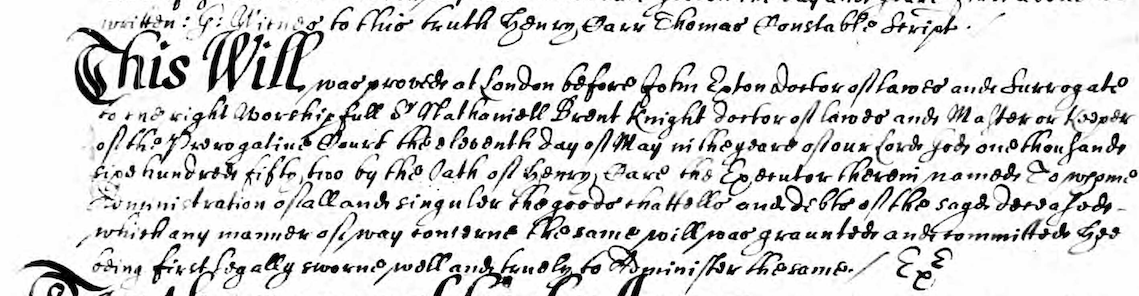 written: G: Witnes to this truth Henry Carr Thomas Constable Script.
This Will was proved at London before John Exton doctor of lawes and Surrogate
to the right Worshipfull Sr Nathaniell Brent Knight doctor of lawes and Master or Keeper
of the Prerogative Court the eleventh day of May in the yeare of our Lord God one thousand
sixe hundred fifty two by the oath of Henry Care the Executor therein named To whome
Administration of all and singuler the goods chattells and debts of the sayd deceased
which any manner of way concerne the same will was graunted and committed Hee
being first legally sworne well and truely to Administer the same. / ExE